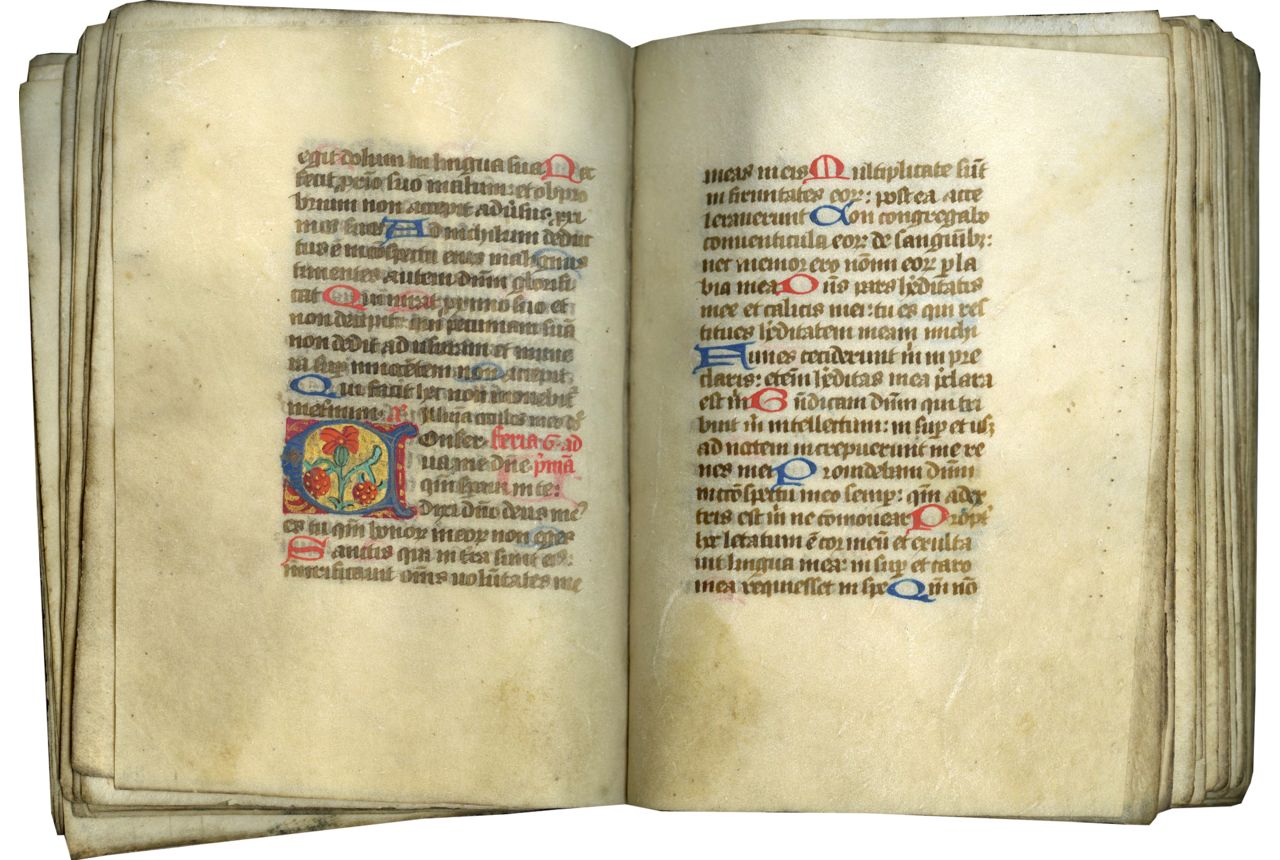 egit dolum in lingua sua Nec
fecit p̄xio suo malum: et obpro
brium non accepit adūsus pxi
mos suos Ad nichilum deduc
tus ē in cōspectu eius malignus
timentes autem dnm̄ glorifi
cat Qui iurat primo suo et
non decipit qui pecuniam suā
non dedit ad usuram et mune
ra sup innocētem non accepit
Qui facit hec non movebit
meternum. Illuīa oculos meos
Conser feria 6 ad
ua me dn̄e p̄mā
qm̄ speraui in te:
Dixi dn̄o deus me
es tu qm̄ bonor meor non eges
Sanctis qui in tr̄a sunt eī:
mirificauit om̄s uolūtates me
meas in eis Multiplicate sūt
infirmitates eor: post ea acce
lerauerunt Non congregabo
conuenticula eor de sanguībꝫ:
nec memor ero nōīm eor p la
bia mea Dn̄s pars h̄editatis
mee et calicis mei: tu es qui res
titues h̄editatem meam michi
Funes ceciderunt m̄ in pre
claris: eten̄i h̄editas mea p̄clara
est m̄ Bn̄dicam dnm̄ qui tri
buit m̄ intellectum: insup et usꝫ
ad noctem increpuerunt me re
nes mei Prouidebam dnm̄
in cōspectu meo semp: qm̄ adex
tris est m̄ ne cōmouear Propt
hoc letatum ē cor meū et exulta
uit lingua mea: insup et caro
mea requiescet in spe Qm̄ nō